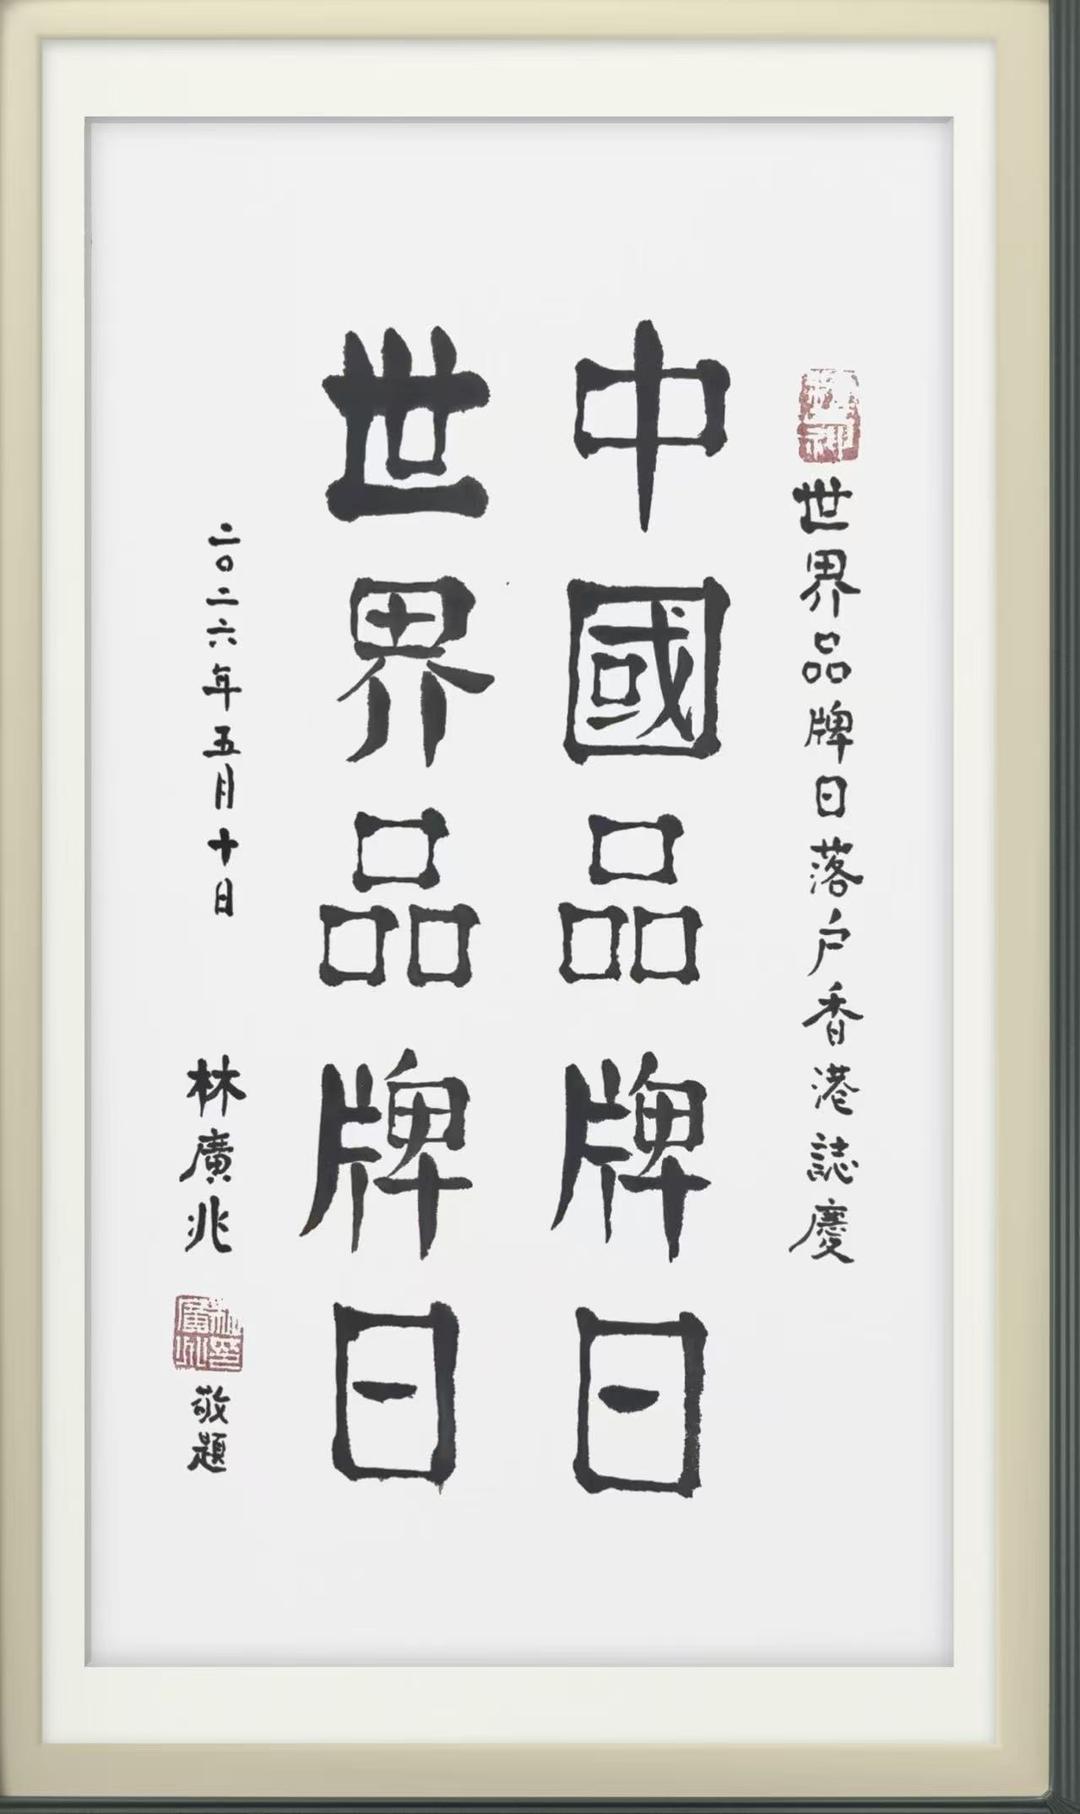 世界品牌日落户香港誌慶
中國品牌日
世界品牌日
二〇二六年五月十日
林廣兆
敬題